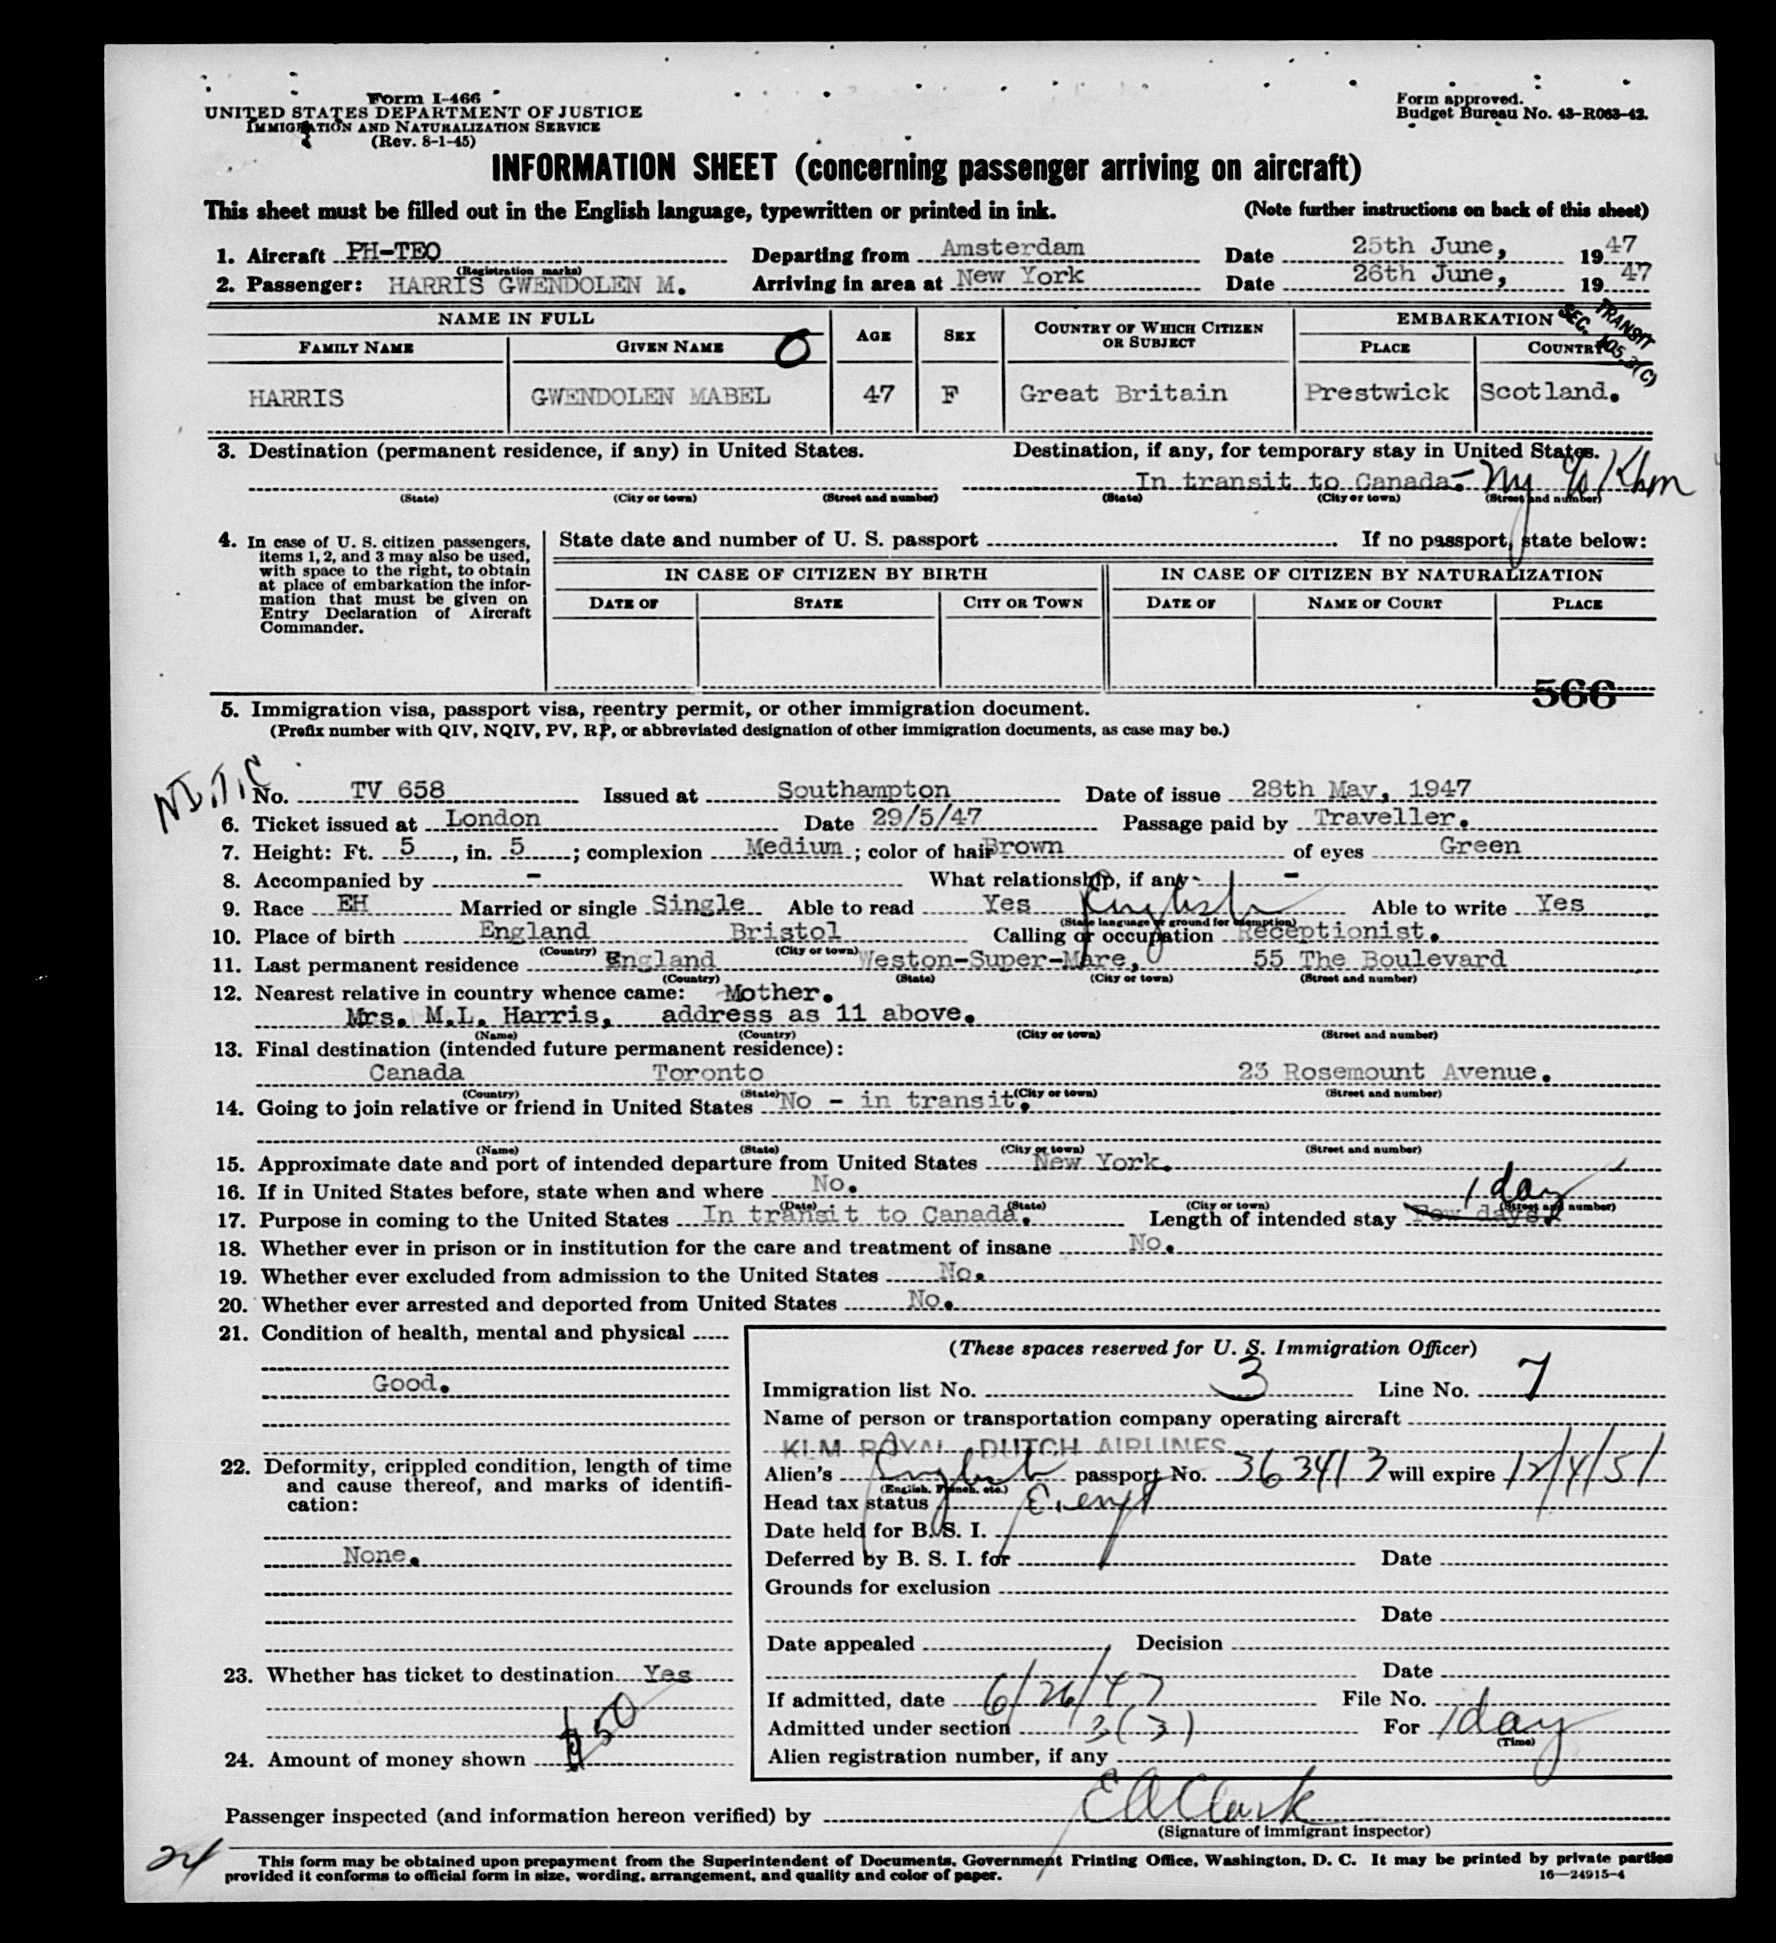 Form I-466
UNITED STATES DEPARTMENT OF JUSTICE
IMMIGRATION AND NATURALIZATION SERVICE
(Rev. 8-1-45)
Form approved.
Budget Bureau No. 43-R063-42.
INFORMATION SHEET (concerning passenger arriving on aircraft)
This sheet must be filled out in the English language, typewritten or printed in ink. (Note further instructions on back of this sheet)
1. Aircraft PH-TEO Departing from Amsterdam Date 25th June, 1947
(Registration marks)
2. Passenger: HARRIS GWENDOLEN M. Arriving in area at New York Date 26th June, 1947
NAME IN FULL AGE SEX COUNTRY OF WHICH CITIZEN OR SUBJECT EMBARKATION
FAMILY NAME GIVEN NAME O PLACE COUNTRY
TRANSIT
SEC. 105.3(C)
HARRIS GWENDOLEN MABEL 47 F Great Britain Prestwick Scotland.
3. Destination (permanent residence, if any) in United States. Destination, if any, for temporary stay in United States.
In transit to Canada. - Ny c/o Klm
(State) (City or town) (Street and number) (State) (City or town) (Street and number)
4. In case of U. S. citizen passengers, items 1, 2, and 3 may also be used, with space to the right, to obtain at place of embarkation the information that must be given on Entry Declaration of Aircraft Commander.
State date and number of U. S. passport If no passport, state below:
IN CASE OF CITIZEN BY BIRTH IN CASE OF CITIZEN BY NATURALIZATION
DATE OF STATE CITY OR TOWN DATE OF NAME OF COURT PLACE
566
5. Immigration visa, passport visa, reentry permit, or other immigration document.
(Prefix number with QIV, NQIV, PV, RP, or abbreviated designation of other immigration documents, as case may be.)
No. TV 658 Issued at Southampton Date of issue 28th May, 1947
6. Ticket issued at London Date 29/5/47 Passage paid by Traveller.
7. Height: Ft. 5, in. 5; complexion Medium; color of hair Brown of eyes Green
8. Accompanied by - What relationship, if any - -
9. Race EH Married or single Single Able to read Yes English Able to write Yes
(State language or ground for exemption)
10. Place of birth England Bristol Calling or occupation Receptionist.
(Country) (City or town)
11. Last permanent residence England Weston-Super-Mare, 55 The Boulevard
(Country) (State) (City or town) (Street and number)
12. Nearest relative in country whence came: Mother.
Mrs. M.L. Harris, address as 11 above.
(Name) (Country) (City or town) (Street and number)
13. Final destination (intended future permanent residence):
Canada Toronto 23 Rosemount Avenue.
(Country) (State) (City or town) (Street and number)
14. Going to join relative or friend in United States No - in transit.
(Name) (State) (City or town) (Street and number)
15. Approximate date and port of intended departure from United States New York.
16. If in United States before, state when and where No.
(Date) (State) (City or town) (Street and number)
1 day
17. Purpose in coming to the United States In transit to Canada. Length of intended stay Few days.
18. Whether ever in prison or in institution for the care and treatment of insane No.
19. Whether ever excluded from admission to the United States No.
20. Whether ever arrested and deported from United States No.
21. Condition of health, mental and physical
Good.
22. Deformity, crippled condition, length of time and cause thereof, and marks of identification:
None.
23. Whether has ticket to destination Yes
24. Amount of money shown $50
(These spaces reserved for U. S. Immigration Officer)
Immigration list No. 3 Line No. 7
Name of person or transportation company operating aircraft
KLM ROYAL DUTCH AIRLINES
Alien's English passport No. 363413 will expire 12/4/51
(English, French, etc.)
Head tax status
Date held for B. S. I.
Deferred by B. S. I. for Date
Grounds for exclusion
Date
Date appealed Decision
Date
If admitted, date 6/26/47 File No.
Admitted under section 3(3) For 1 day
(Time)
Alien registration number, if any
Passenger inspected (and information hereon verified) by E A Clark
(Signature of immigrant inspector)
24
This form may be obtained upon prepayment from the Superintendent of Documents, Government Printing Office, Washington, D. C. It may be printed by private parties
provided it conforms to official form in size, wording, arrangement, and quality and color of paper. 16—24915-4